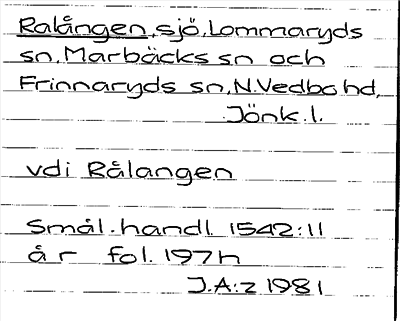 Ralången, sjö, Lommaryds
sn, Marbäcks sn och
Frinnaryds sn, N. Vedbo hd,
Jönk. l.
vdi Rålangen
Smål. handl. 1542:11
år fol. 197h
J.A:z 1981